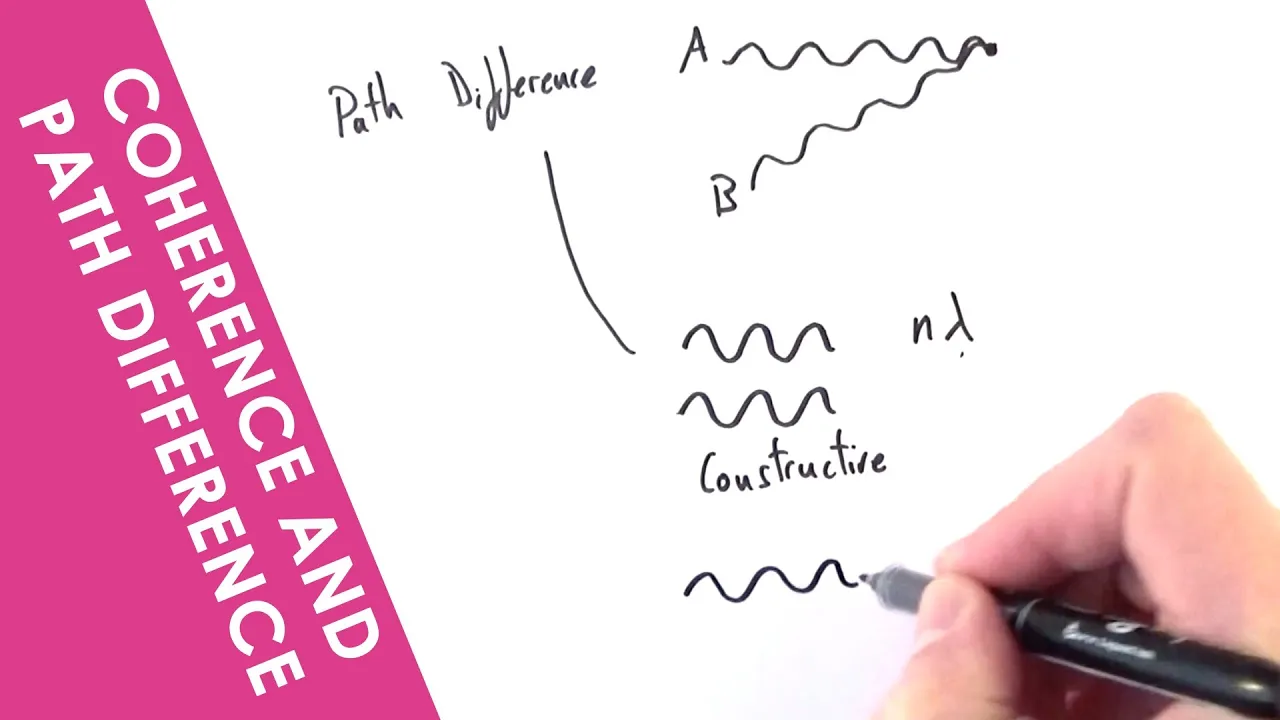 COHERENCE AND
PATH DIFFERENCE
Path Difference
A
B
nλ
Constructive